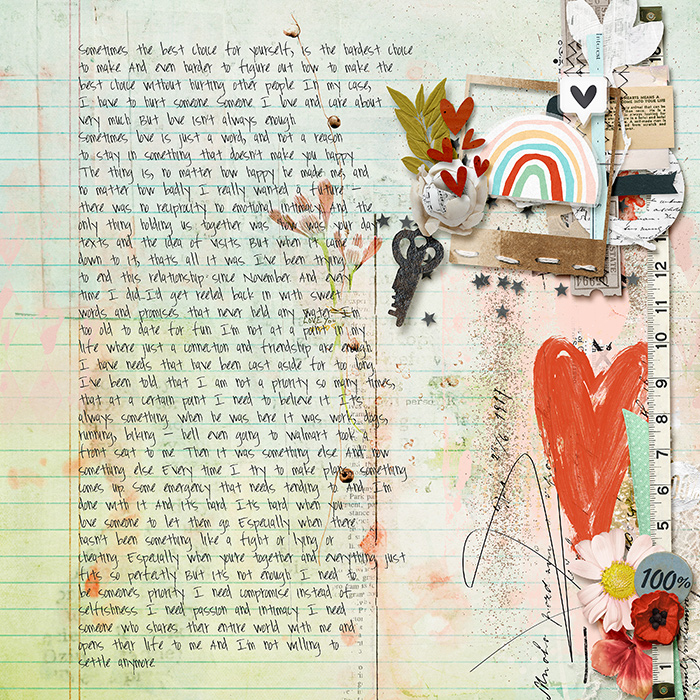 Sometimes the best choice for yourself, is the hardest choice
to make And even harder to figure out how to make the
best choice without hurting other people In my case,
I have to hurt someone Someone I love and care about
very much But love isn't always enough
Sometimes love is just a word, and not a reason
to stay in something that doesn't make you happy
The thing is, no matter how happy he made me, and
no matter how badly I really wanted a future –
there was no reciprocity no emotional intimacy And the
only thing holding us together was how was your day
texts and the idea of visits But when it came
down to it, thats all it was I've been trying
to end this relationship since November And every
time I did I'd get reeled back in with sweet
words and promises that never held any water I'm
too old to date for fun I'm not at a point in my
life where just a connection and friendship are enough
I have needs that have been cast aside for too long
I've been told that I am not a priority so many times,
that at a certain point I need to believe it It's
always something when he was here it was work, dogs,
running, biking – hell even going to walmart took a
front seat to me Then it was something else And now
something else Every time I try to make plans something
comes up Some emergency that needs tending to And I'm
done with it And it's hard It's hard when you
love someone to let them go Especially when there
hasn't been something like a fight or lying or
cheating Especially when you're together and everything just
fits so perfectly But it's not enough I need to
be someone's priority I need compromise instead of
selfishness I need passion and intimacy I need
someone who shares their entire world with me and
opens their life to me And I'm not willing to
settle anymore
Interest
COME INTO YOUR LIFE
LOVE YOU
12
11
10
9
8
7
6
5
100%
1